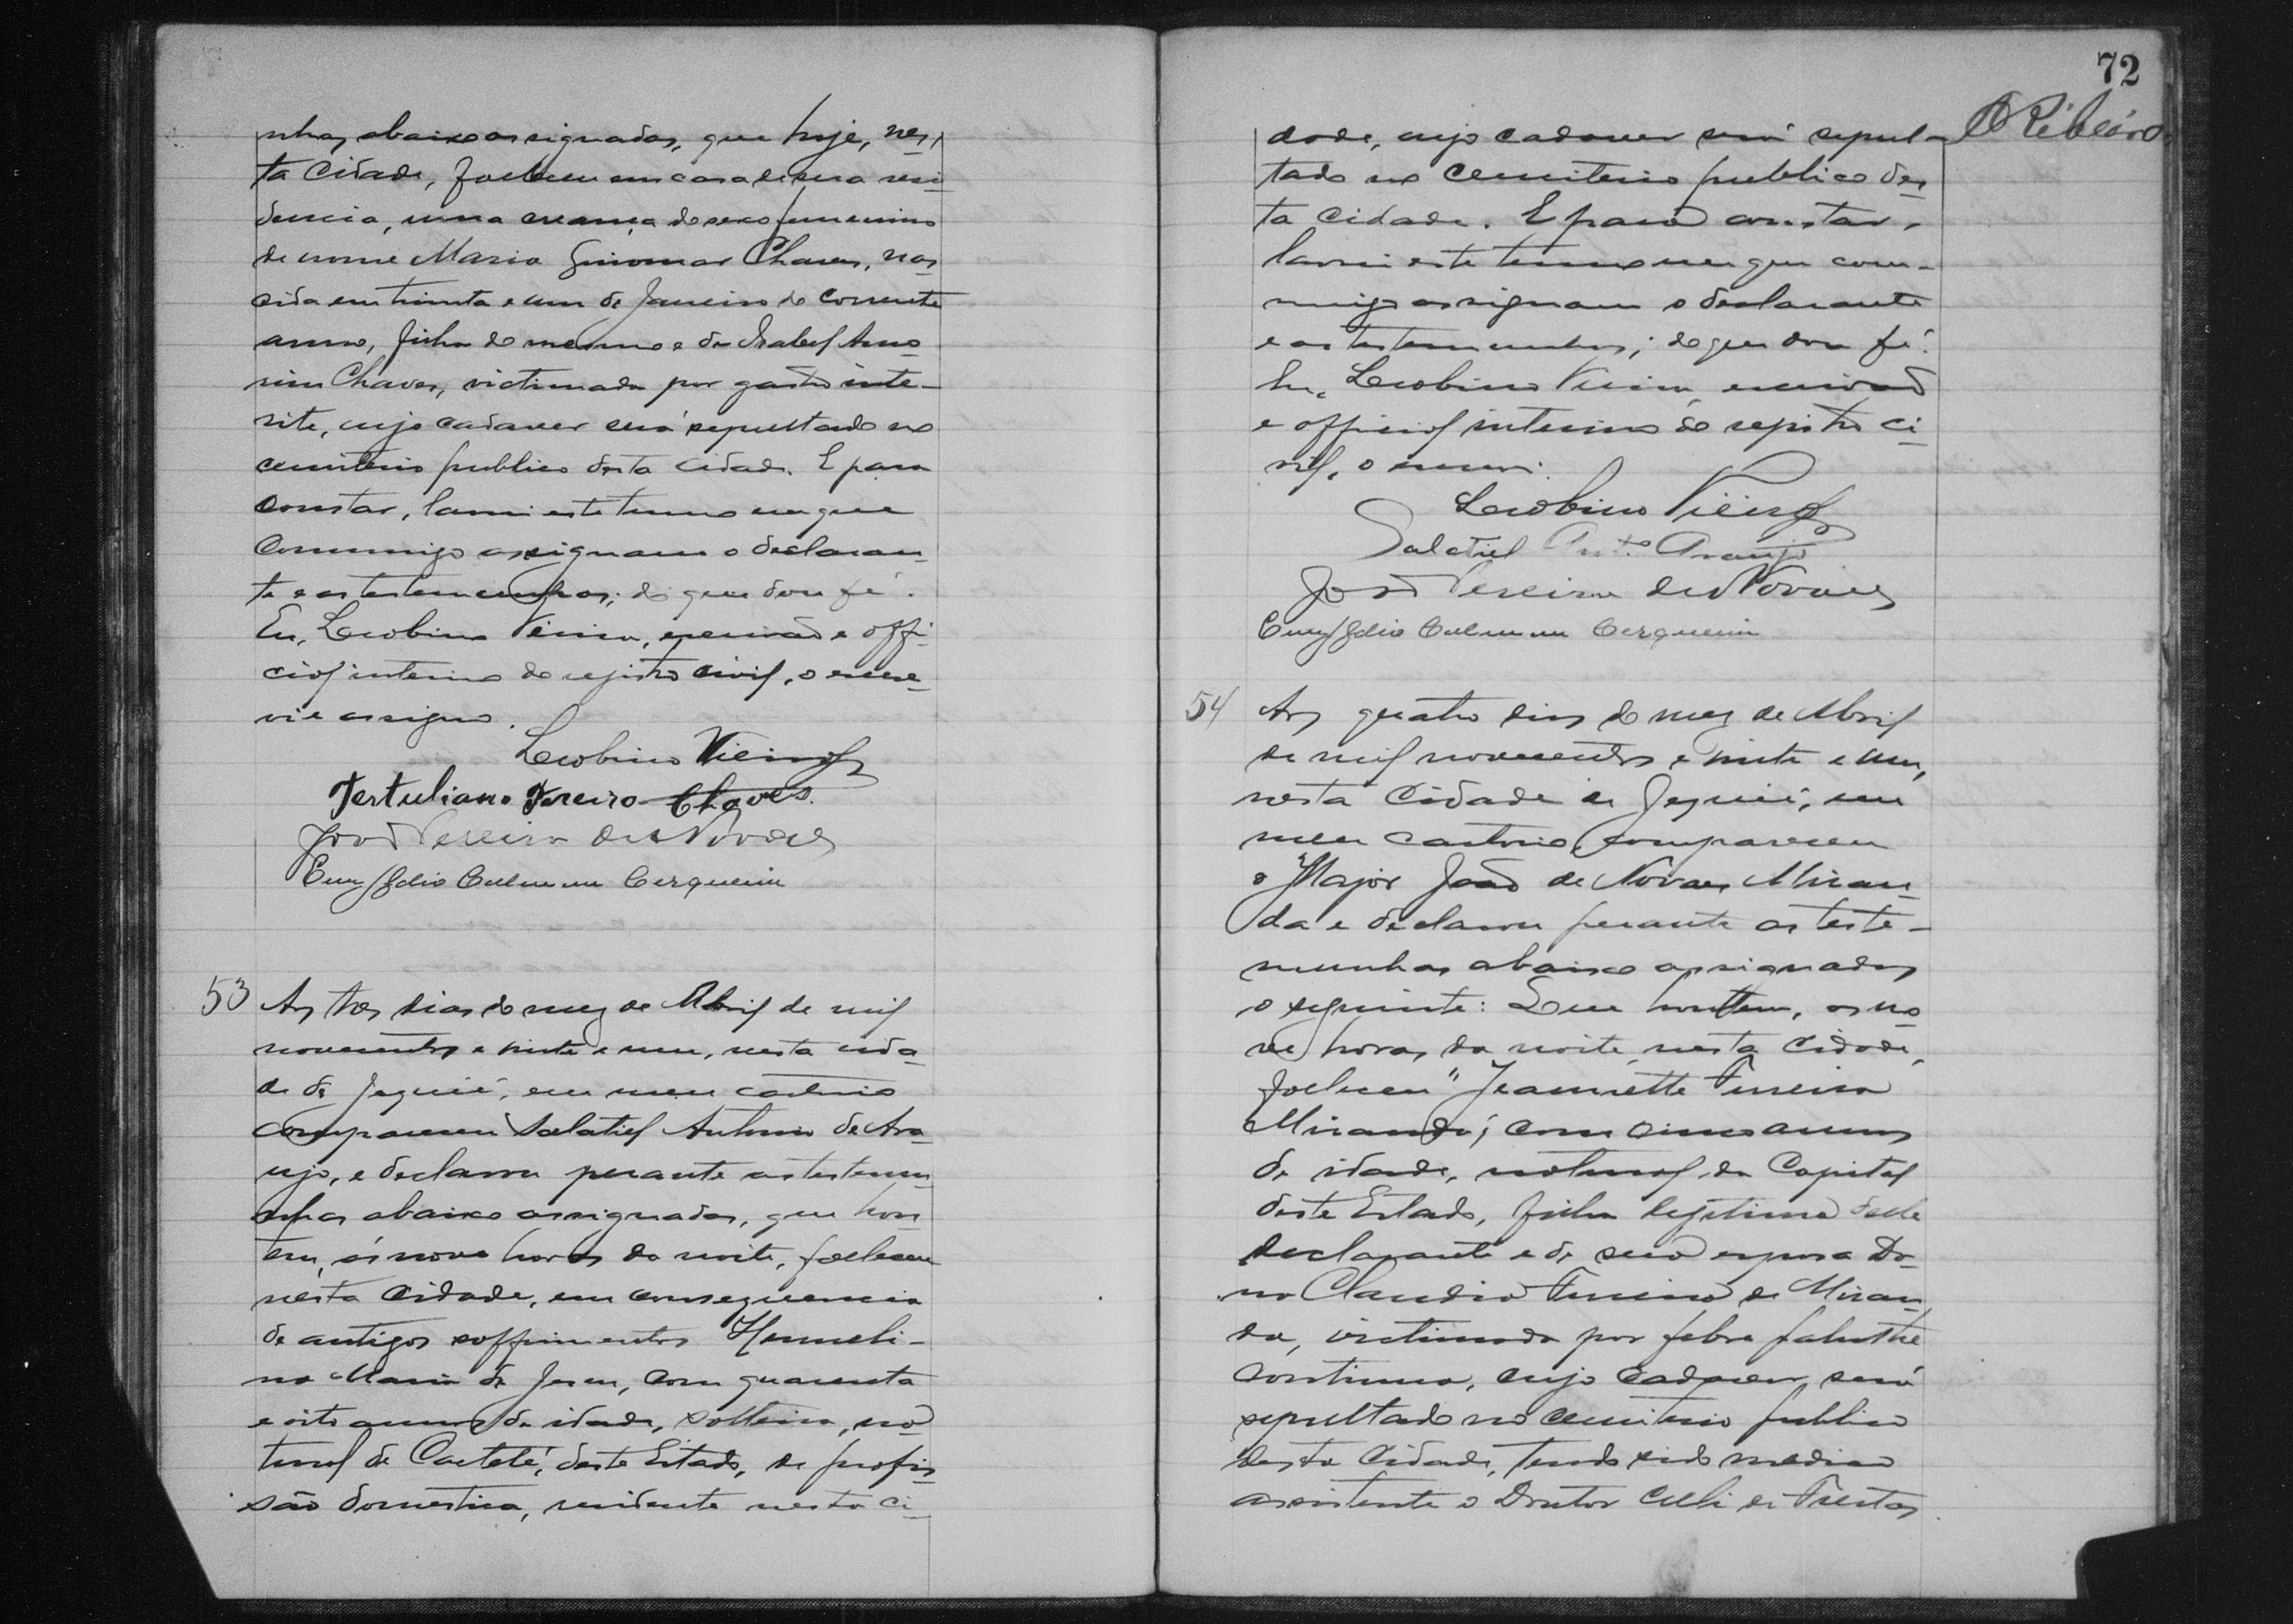 nhas abaixo assignadas, que hoje, nes-
ta Cidade, falleceu em casa de sua resi-
dencia, uma creança do sexo femenino
de nome Maria Guiomar Chaves, nas-
cida em trinta e um de Janeiro do corrente
anno, filha do mesmo e de Isabel Amo-
rim Chaves, victimada por gastro inte-
rite, cujo cadaver será sepultado no
cemiterio publico desta cidade. E para
constar, lavrei este termo em que
commigo assignam o declaran-
te e as testemunhas; do que dou fé.
Eu, Leobino Vieira, escrivão e offi-
cial interino do registro civil, o escre-
vi e assigno.
Leobino Vieira
Tertuliano Pereira Chaves.
José Pereira de Novaes
Emygdio Cerqueira
53 Aos tres dias do mez de Abril de mil
novecentos e vinte e um, nesta cida-
de de Jequié, em meu cartorio
compareceu Salatiel Antonio de Ara-
ujo, e declarou perante as testemu-
nhas abaixo assignadas, que hon-
tem, ás nove horas da noite, falleceu
nesta Cidade, em consequencia
de antigos soffrimentos Hermeli-
na Maria de Jesus, com quarenta
e oito annos de idade, solteira, na-
tural de Caeteté, deste Estado, de profis-
são domestica, residente nesta ci-
72
Ribeiro
dade, cujo cadaver será sepul-
tado no cemiterio publico des-
ta cidade. E para constar,
lavrei este termo em que com-
migo assignam o declarante
e as testemunhas; do que dou fé.
Eu, Leobino Vieira, escrivão
e official interino do registro ci-
vil, o escrevi.
Leobino Vieira
Salatiel Ant.º Araujo
José Pereira de Novaes
Emygdio Cerqueira
54 Aos quatro dias do mez de Abril
de mil novecentos e vinte e um,
nesta Cidade de Jequié, em
meu cartorio, compareceu
o Major João de Novaes Miran-
da e declarou perante as teste-
munhas abaixo assignadas
o seguinte: Que hontem, as no-
ve horas da noite, nesta Cidade,
falleceu Jeannette Ferreira
Miranda; com cinco annos
de idade, natural da Capital
deste Estado, filha legitima delle
declarante e de sua esposa Do-
na Claudia Ferreira de Miran-
da, victimada por febre palustre
continua, cujo cadaver será
sepultado no cemiterio publico
desta Cidade, tendo sido medico
assistente o Doutor de Freitas